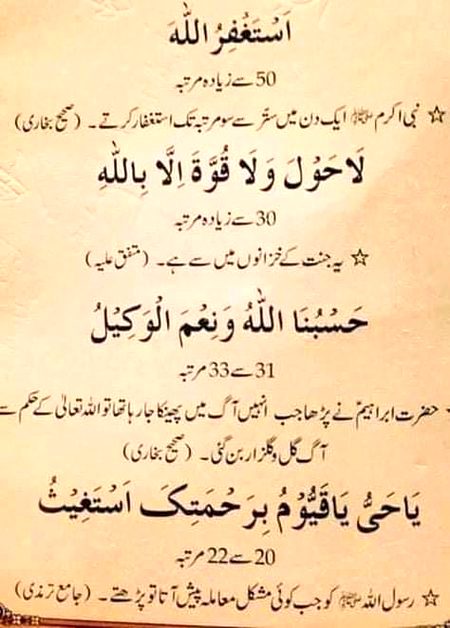 اَسْتَغْفِرُ اللّٰهَ
50 سے زیادہ مرتبہ
☆ نبی اکرم ﷺ ایک دن میں ستّر سے سو مرتبہ تک استغفار کرتے۔ (صحیح بخاری)
لَا حَوْلَ وَلَا قُوَّةَ اِلَّا بِاللّٰهِ
30 سے زیادہ مرتبہ
☆ یہ جنت کے خزانوں میں سے ہے۔ (متفق علیہ)
حَسْبُنَا اللّٰهُ وَنِعْمَ الْوَكِيْلُ
31 سے 33 مرتبہ
حضرت ابراہیمؑ نے پڑھا جب انہیں آگ میں پھینکا جا رہا تھا تو اللہ تعالیٰ کے حکم سے
آگ گل و گلزار بن گئی۔ (صحیح بخاری)
يَا حَىُّ يَا قَيُّوْمُ بِرَحْمَتِكَ اَسْتَغِيْثُ
20 سے 22 مرتبہ
☆ رسول اللہ ﷺ کو جب کوئی مشکل معاملہ پیش آتا تو پڑھتے۔ (جامع ترمذی)